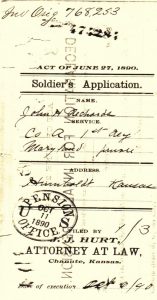 Inv Orig 768253
ACT OF JUNE 27, 1890.
Soldier's Application.
NAME.
John H Richards
SERVICE.
Co A 1st Reg
Maryland
ADDRESS.
Humboldt Kansas
PENSION
U.S.
11
1890
OFFICE
FILED BY
J. J. HURT,
ATTORNEY AT LAW,
Chanute, Kansas.
Date of execution